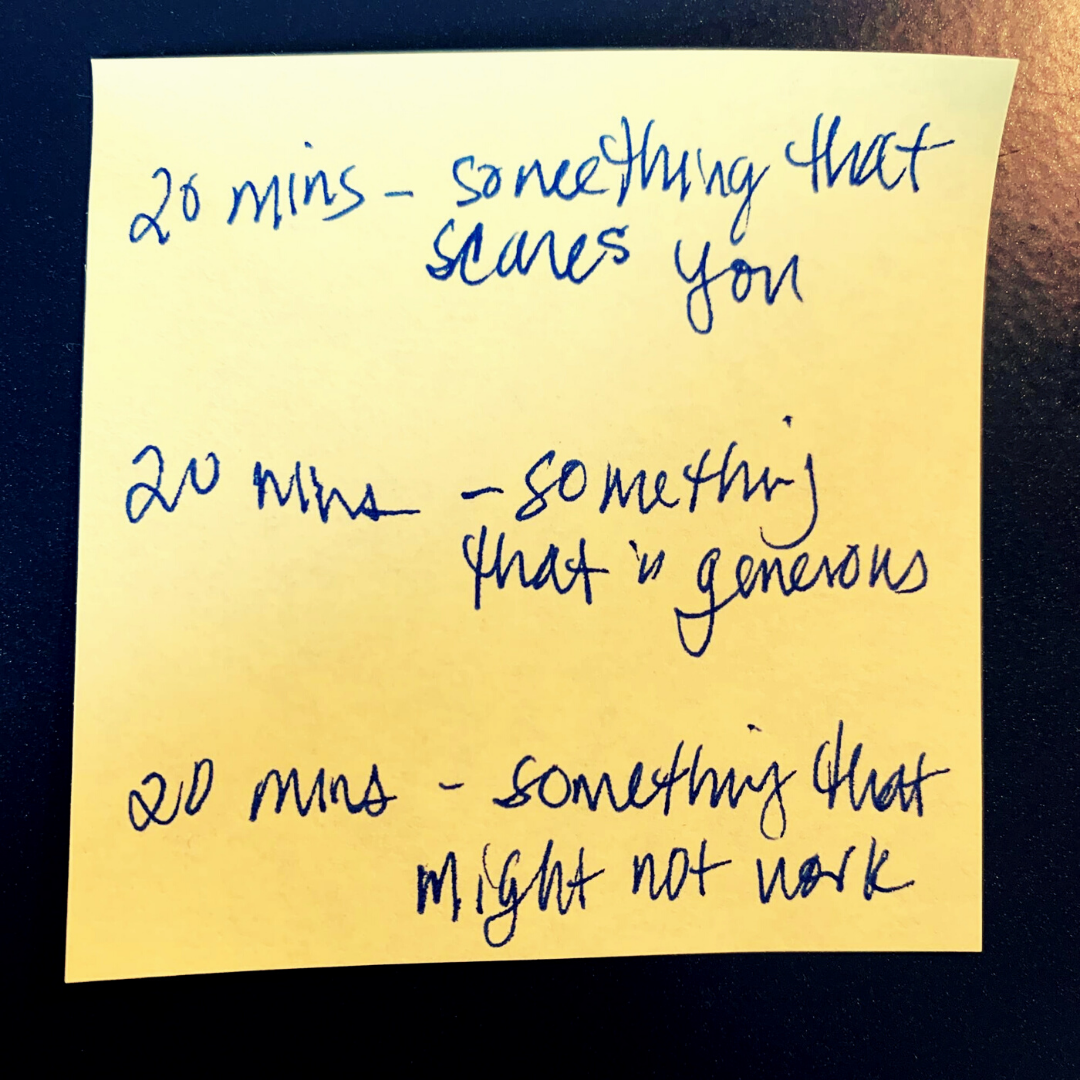 20 mins - something that
scares you
20 mins - something
that is generous
20 mins - something that
might not work